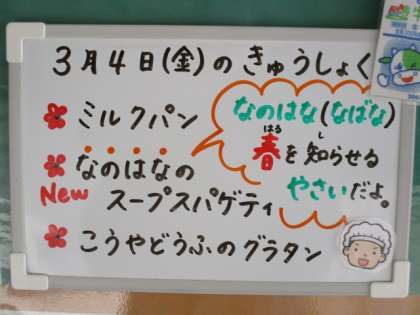 3月4日(金)のきゅうしょく
ミルクパン
なのはなの
New スープスパゲティ
こうやどうふのグラタン
なのはな(なばな)
春を知らせる
はる し
やさいだよ。